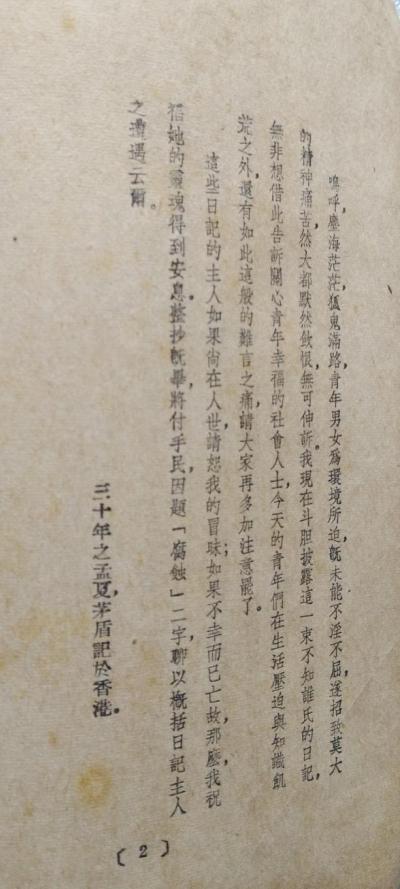 嗚呼，塵海茫茫，狐鬼滿路，青年男女爲環境所迫，旣未能不淫不屈，遂招致莫大
的精神痛苦，然大都默然飲恨，無可伸訴。我現在斗胆披露這一束不知誰氏的日記，
無非想借此告訴關心青年幸福的社會人士，今天的青年們在生活壓迫與知識飢
荒之外，還有如此這般的難言之痛，請大家再多加注意罷了。
這些日記的主人如果尙在人世，請恕我的冒昧；如果不幸而已亡故，那麼，我祝
福她的靈魂得到安息。整抄旣畢，將付手民，因題「腐蝕」二字，聊以概括日記主人
之遭遇云爾。
三十年之孟夏，茅盾記於香港。
〔2〕